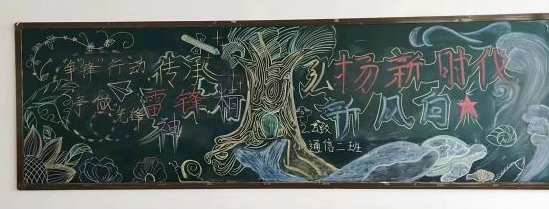 "争锋"行动
争做先锋
传承
雷锋精
神
弘扬新时代
新风向
通信二班